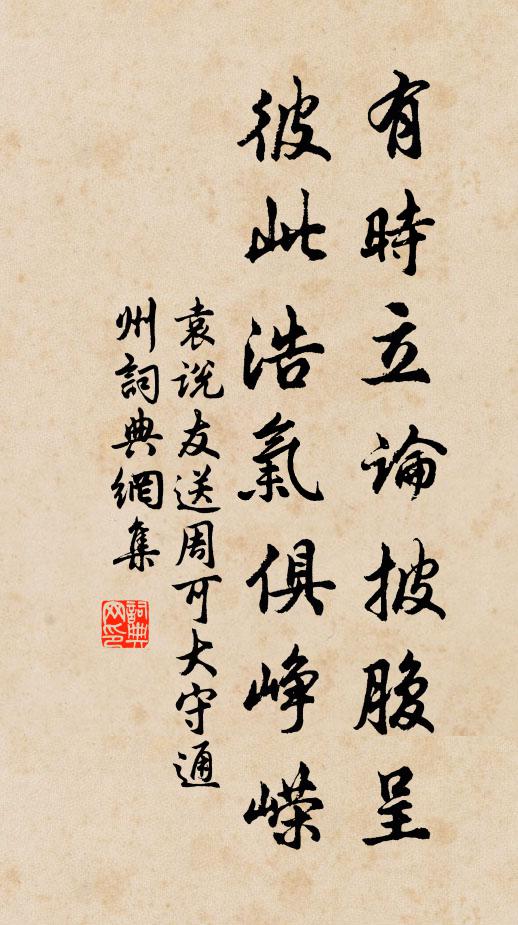 有時立論披腹呈
彼此浩氣俱崢嶸
袁説友送周可大守通
州詞典網集
詞典
网印